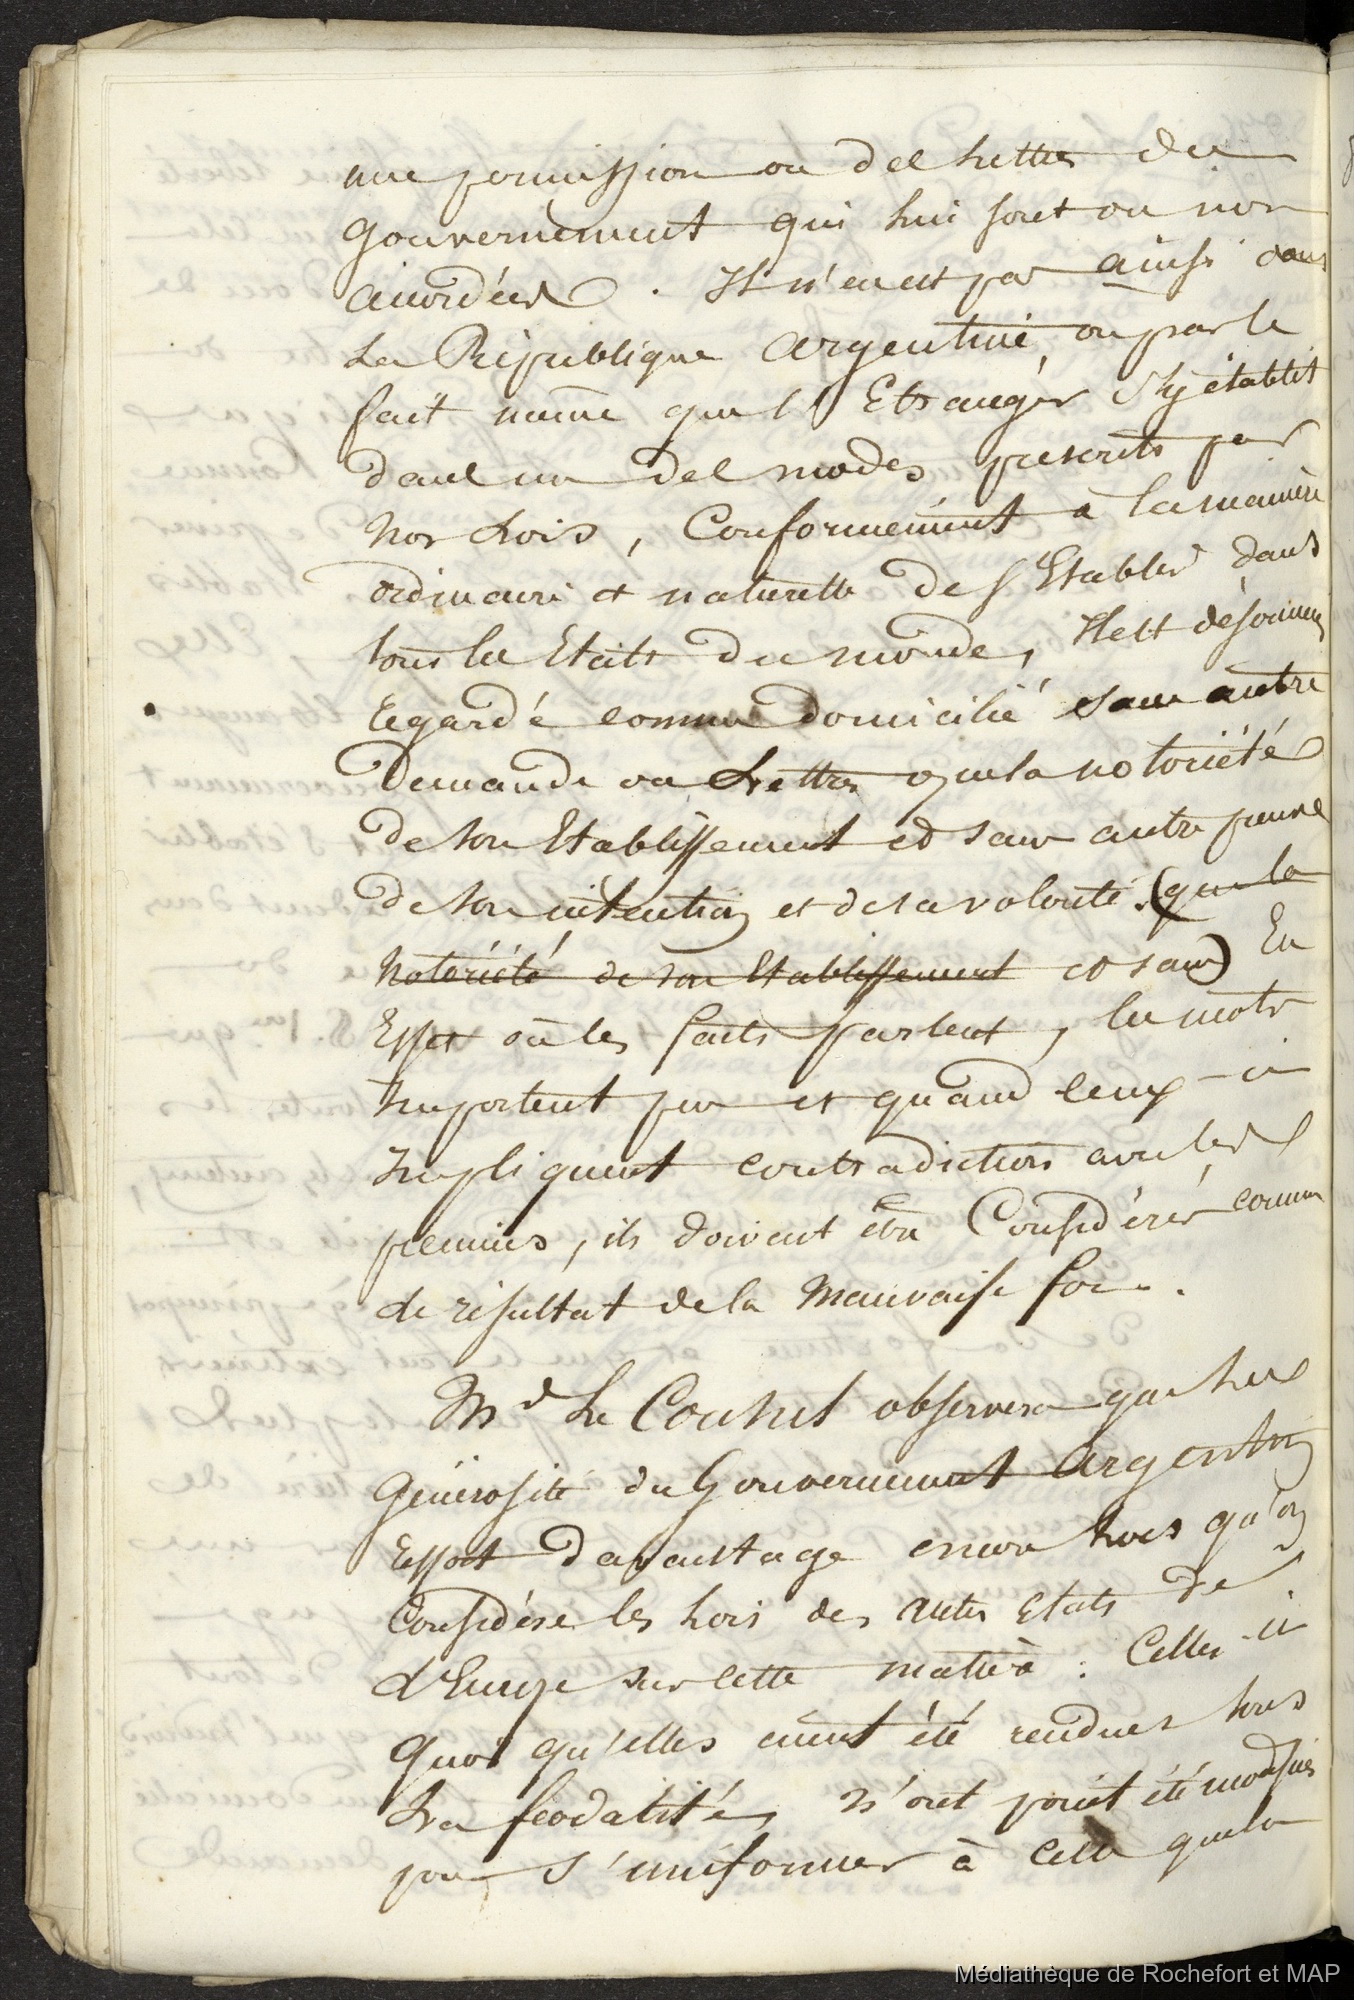 une permission ou des Lettres du
Gouvernement qui lui sont ou non
acordées. Il n'en est pas ainsi dans
La République Argentine, ou par le
fait même que l'Etranger s'y établit
dans un des modes prescrits par
nos Lois, Conformément à la manière
ordinaire et naturelle de s'Etablir dans
tous les Etats du monde, Il est désormais
Regardé comme domicilié sans autre
demande ou Lettres que la notoriété
de son Etablissement et sans autre preuve
de son intention et de sa volonté. (que la
Notoriété de son Etablissement et sans) En
Effet où les faits parlent, les mots
Importent peu et quand ceux-ci
Impliquent contradiction avec les
premiers, ils doivent être Considérés comme
de résultat de la Mauvaise foi.
Mr. Le Consul observera que la
Générosité du Gouvernement Argentin
Ressort davantage encore lors qu'on
Considère les Lois des autres Etats de
d'Europe sur cette matière : Celles-ci
Quoi qu'elles aient été rendues sous
La féodalité, n'ont point été modifiées
pour s'uniformer à celle que la
Médiathèque de Rochefort et MAP